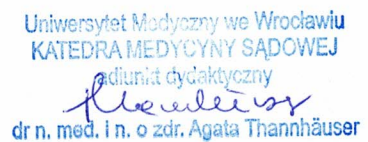 Uniwersytet Medyczny we Wrocławiu
KATEDRA MEDYCYNY SĄDOWEJ
adiunkt dydaktyczny
dr n. med. i n. o zdr. Agata Thannhäuser